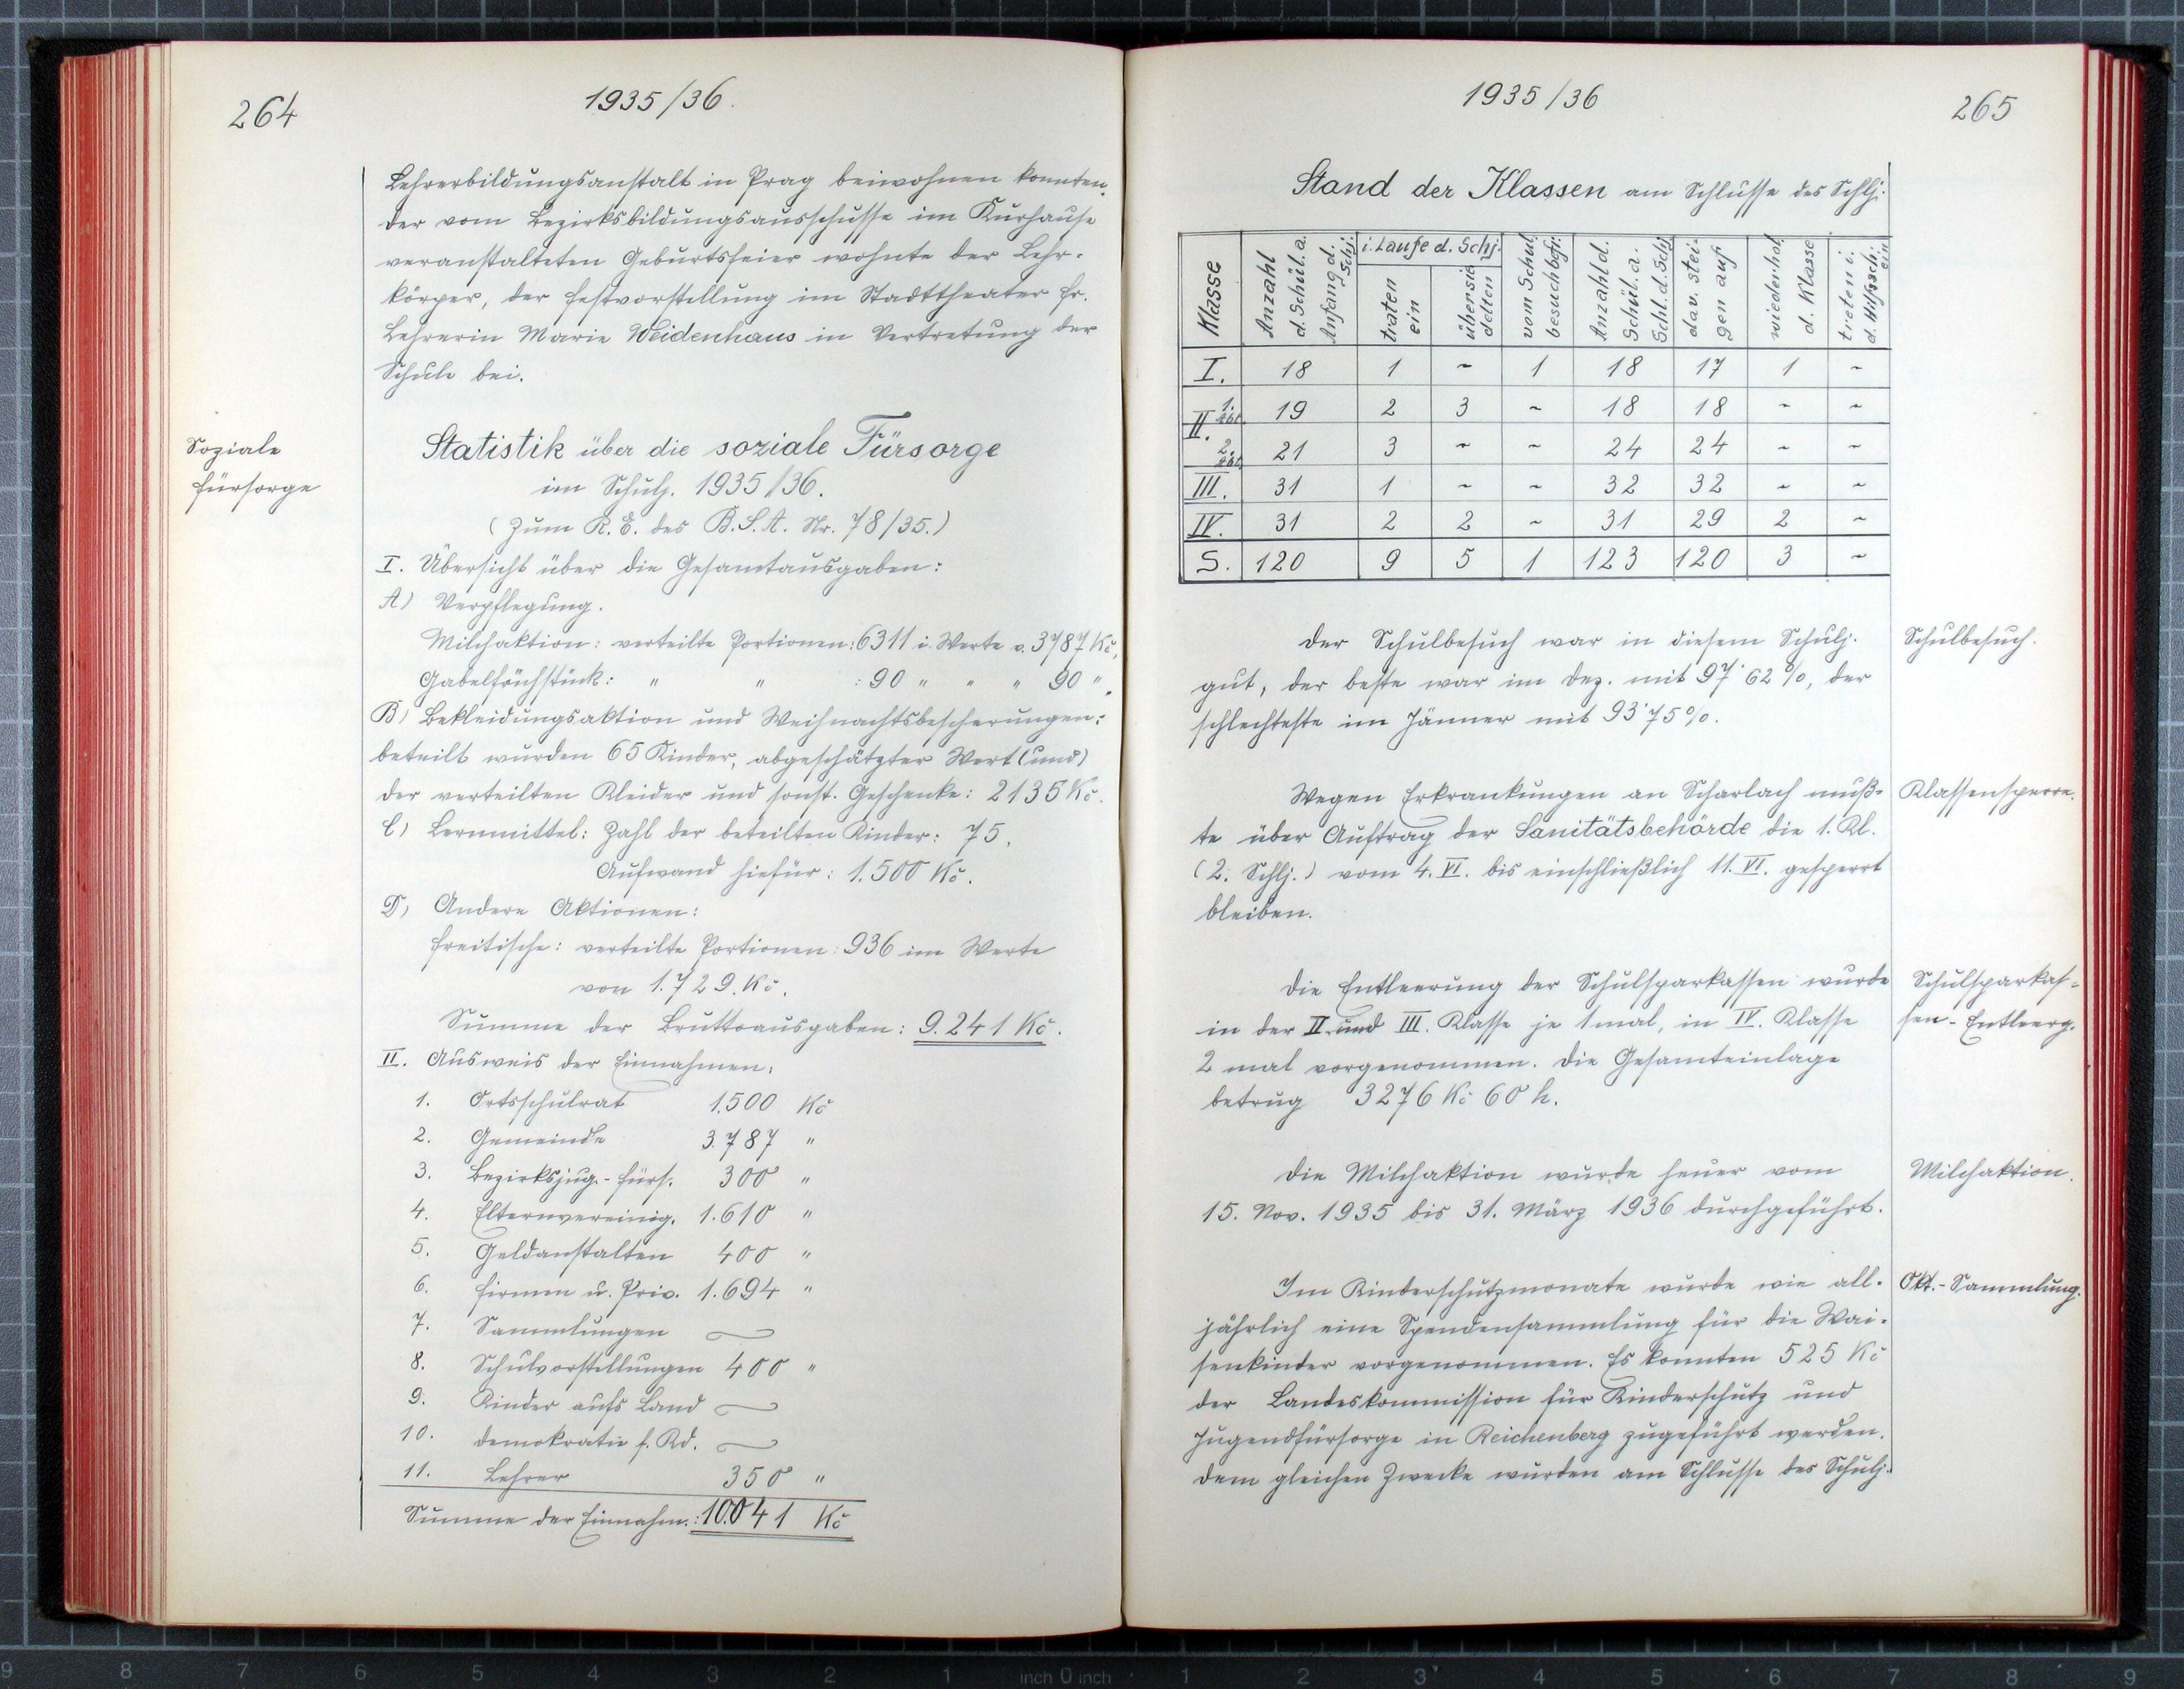 264
1935/36.
Lehrerbildungsanstalt in Prag beiwohnen konnten.
Der vom Bezirksbildungsausschusse im Kurhause
veranstalteten Geburtsfeier wohnte der Lehr-
körper, der Festvorstellung im Stadttheater Fr.
Lehrerin Marie Weidenhaus in Vertretung der
Schule bei.
Soziale
Fürsorge
Statistik über die soziale Fürsorge
im Schulj. 1935/36.
(Zum R. E. des B.S.A. Nr. 78/35.)
I. Übersicht über die Gesamtausgaben:
A) Verpflegung.
Milchaktion: verteilte Portionen: 6311 i. Werte v. 3787 Kč,
Gabelfrühstück: " " : 90 " " " 90 ".
B) Bekleidungsaktion und Weihnachtsbescherungen:
beteilt wurden 65 Kinder, abgeschätzter Wert (und)
der verteilten Kleider und sonst. Geschenke: 2135 Kč.
C) Lernmittel: Zahl der beteilten Kinder: 75.
Aufwand hiefür: 1.500 Kč.
D) Andere Aktionen:
Freitische: verteilte Portionen: 936 im Werte
von 1.729. Kč.
Summe der Bruttoausgaben: 9.241 Kč.
II. Ausweis der Einnahmen:
1. Ortsschulrat 1.500 Kč
2. Gemeinde 3.787 "
3. Bezirksjug.-Fürs. 300 "
4. Elternvereinig. 1.610 "
5. Geldanstalten 400 "
6. Firmen u. Priv. 1.694 "
7. Sammlungen ~
8. Schulvorstellungen 400 "
9. Kinder aufs Land ~
10. Demokratie f. Kd. ~
11. Lehrer 350 "
Summe der Einnahm.: 10.041 Kč
1935/36
265
Stand der Klassen am Schlusse des Schlj.
Klasse | Anzahl d. Schül. a. Anfang d. Schj. | i. Laufe d. Schj. | traten ein | übersiedelten | vom Schulbesuch befr. | Anzahl d. Schül. a. Schl. d. Schj | dav. steigen auf | wiederhol. d. Klasse | treten i. d. Hilfssch. ein
I. 18 1 ~ 1 18 17 1 ~
II. 1. Abt. 19 2 3 ~ 18 18 ~ ~
2. Abt. 21 3 ~ ~ 24 24 ~ ~
III. 31 1 ~ ~ 32 32 ~ ~
IV. 31 2 2 ~ 31 29 2 ~
S. 120 9 5 1 123 120 3 ~
Der Schulbesuch war in diesem Schulj.
gut, der beste war im Dez. mit 97˙62%, der
schlechteste im Jänner mit 93˙75%.
Schulbesuch.
Wegen Erkrankungen an Scharlach muß-
te über Auftrag der Sanitätsbehörde die 1. Kl.
(2. Schlj.) vom 4. VI. bis einschließlich 11. VI. gesperrt
bleiben.
Klassensperre.
Die Entleerung der Schulsparkassen wurde
in der II. und III. Klasse je 1mal, in IV. Klasse
2 mal vorgenommen. Die Gesamteinlage
betrug 3276 Kč 60 h.
Schulsparkas-
sen-Entleerg.
Die Milchaktion wurde heuer vom
15. Nov. 1935 bis 31. März 1936 durchgeführt.
Milchaktion.
Im Kinderschutzmonate wurde wie all-
jährlich eine Spendensammlung für die Wai-
senkinder vorgenommen. Es konnten 525 Kč
der Landeskommission für Kinderschutz und
Jugendfürsorge in Reichenberg zugeführt werden.
Dem gleichen Zwecke wurden am Schlusse des Schulj.
Okt.-Sammlung.
9 8 7 6 5 4 3 2 1 inch 0 inch 1 2 3 4 5 6 7 8 9